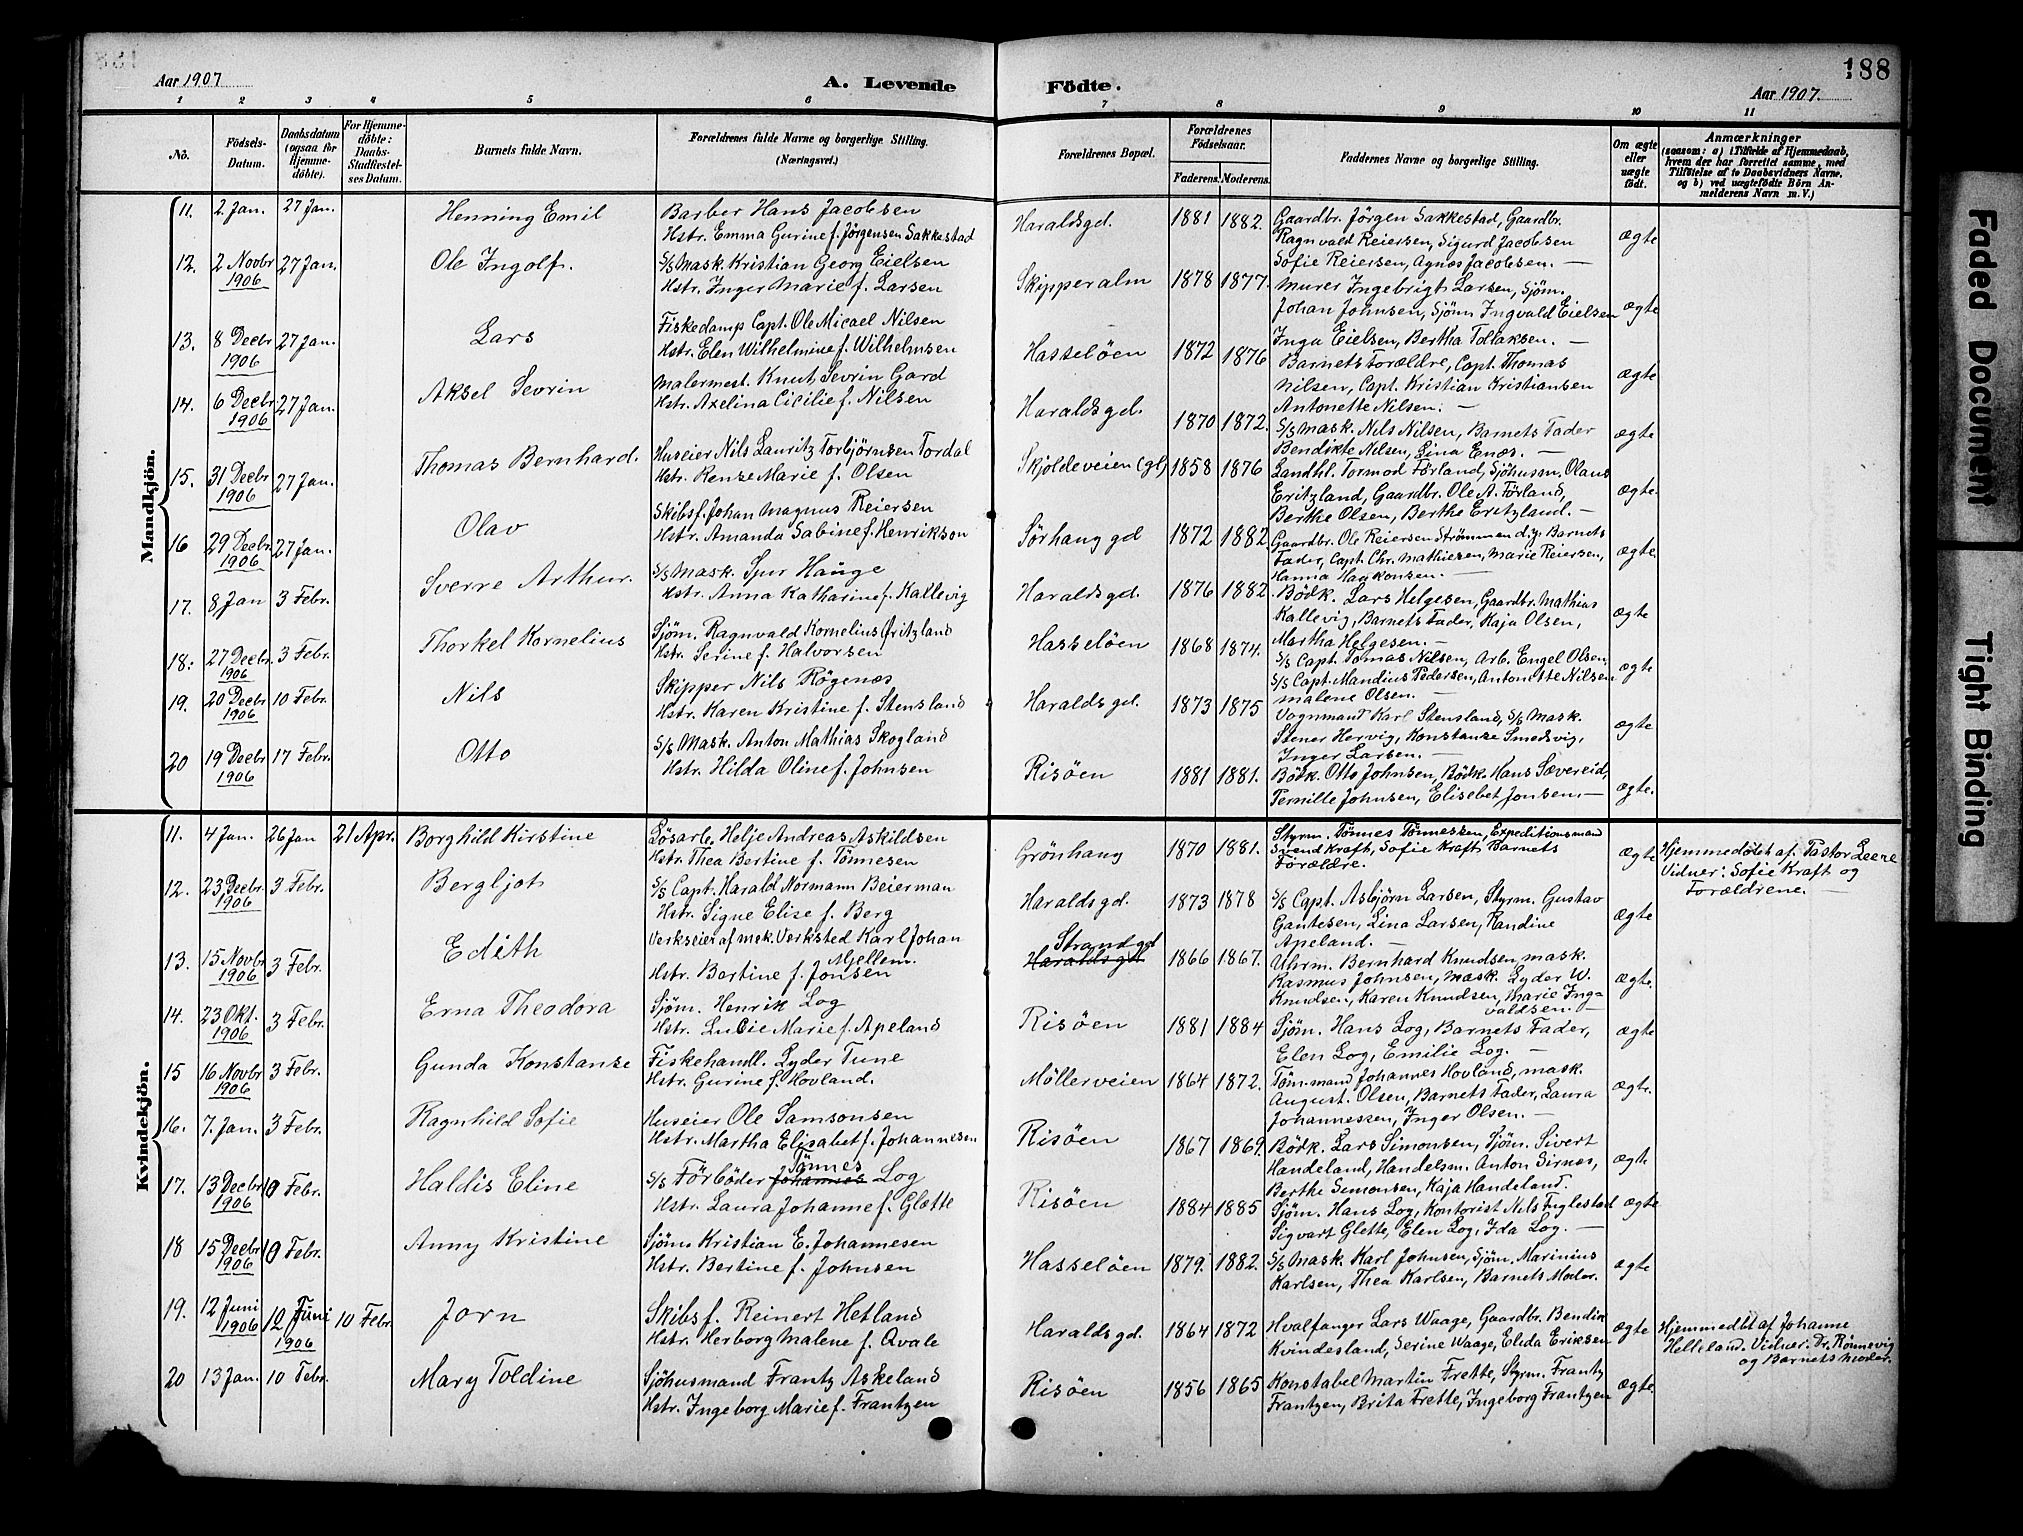 188
Aar 1907
A. Levende Födte.
Aar 1907.
1 2 3 4 5 6 7 8 9 10 11
No.
Födsels-Datum.
Daabsdatum (ogsaa for Hjemmedöbte).
For Hjemmedöbte: Daabs-Stadfestelses Datum.
Barnets fulde Navn.
Forældrenes fulde Navne og borgerlige Stilling. (Næringsvei.)
Forældrenes Bopæl.
Forældrenes Födselsaar.
Faderens. Moderens.
Faddernes Navne og borgerlige Stilling.
Om ægte eller uægte födt.
Anmærkninger
(saasom: a) i Tilfælde af Hjemmedaab, hvem der har forrettet samme, med Tilföielse af to Daabsvidners Navne, og b) ved uægtefödte Börn Anmelderens Navn m. V.)
Mandkjön.
11. 2 Jan. 27 Jan. Henning Emil
Barber Hans Jacobsen
Hstr. Emma Gurine f. Jørgensen Sakkestad
Haraldsgd. 1881 1882.
Gaardbr. Jörgen Sakkestad, Gaardbr.
Ragnvald Reiersen, Sigurd Jacobsen
Sofie Reiersen, Agnes Jacobsen. —
ægte
12. 2 Novbr 1906 27 Jan. Ole Ingolf.
S/S Mask. Kristian Georg Eielsen
Hstr. Inger Marie f. Larsen
Skipperalm 1878 1877.
Murer Ingebrigt Larsen, Sjöm.
Johan Johnsen, Sjöm Ingvald Eielsen
Inga Eielsen, Bertha Tollaksen. —
ægte
13. 8 Decbr 1906 27 Jan. Lars
Fiskedamp Capt. Ole Micael Nilsen
Hstr. Elen Wilhelmine f. Wilhelmsen
Hasselöen 1872 1876
Barnets Forældre, Capt. Thomas
Nilsen, Capt. Kristian Kristiansen
Antonette Nilsen. —
ægte
14. 6 Decbr 1906 27 Jan. Aksel Sevrin
Malermest. Knut Sevrin Gard
Hstr. Axelina Cicilie f. Nilsen
Haraldsgd. 1870 1872.
S/S Mask. Nils Nilsen, Barnets Fader
Bendikte Nilsen, Lina Enæs. —
ægte
15. 31 Decbr 1906 27 Jan. Thomas Bernhard.
Huseier Nils Lauritz Torbjørnsen Tordal
Hstr. Renze Marie f. Olsen
Skjoldeveien (gl) 1858 1876
Landhl. Tormod Förland, Sjöhusm. Olaus
Eritzland, Gaardbr. Ole A. Förland,
Berthe Olsen, Berthe Eritzland. —
ægte.
16 29 Decbr. 1906 27 Jan. Olav
Skibsf. Johan Magnus Reiersen
Hstr. Amanda Sabine f. Henrikson
Sørhaug gd 1872 1882
Gaardbr. Ole Reiersen Strömmen d.y. Barnets
Fader, Capt. Chr. Mathiesen, Marie Reiersen,
Hanna Haakonsen. —
ægte.
17. 8 Jan 3 Febr. Sverre Arthur.
S/S Mask. Spur Hauge
Hstr. Anna Katharine f. Kallevig
Haraldsgd. 1876 1882
Bödk. Lars Helgesen, Gaardbr. Mathias
Kallevig, Barnets Fader, Kaja Olsen,
Martha Helgesen. —
ægte
18. 27 Decbr. 1906 3 Febr. Thorkel Kornelius
Sjöm. Ragnvald Kornelius Eritzland
Hstr. Serine f. Halvorsen
Hasselöen 1868 1874.
S/S Capt. Tomas Nilsen, Arb. Engel Olsen,
S/S Capt. Mandius Pedersen, Antonette Nilsen
Malene Olsen. —
ægte
19. 20 Decbr 1906 10 Febr. Nils
Skipper Nils Røgenæs
Hstr. Karen Kristine f. Stensland
Haraldsgd. 1873 1875
Vognmand Karl Stensland, S/S Mask.
Stener Hervig, Konstanse Smedsvig,
Inger Larsen. —
ægte
20 19 Decbr 1906 17 Febr. Otto
S/S Mask. Anton Mathias Skogland
Hstr. Hilda Oline f. Johnsen
Risöen 1881 1881.
Bödk. Otto Johnsen, Bödk. Hans Sævereid,
Pernille Johnsen, Elisebet Jonsen. —
ægte.
Kvindekjön.
11. 4 Jan. 26 Jan 21 Apr. Borghild Kirstine
Løsarb. Helje Andreas Askildsen
Hstr. Thea Bertine f. Tönnesen
Grönhaug 1870 1881.
Styrm. Tönnes Tönnessen, Expeditionsmand
Svend Kraft, Sofie Kraft Barnets
Forældre.
ægte
Hjemmedöbt af Pastor Leere
Vidner: Sofie Kraft og
Forældrene. —
12. 23 Decbr. 1906 3 Febr. Bergljot
S/S Capt. Harald Normann Beierman
Hstr. Signe Elise f. Berg
Haraldsgd. 1873 1878
S/S Capt. Asbjörn Larsen, Styrm. Gustav
Gautesen, Lina Larsen, Randine
Apeland. —
ægte
13. 15 Novbr 1906 3 Febr. Edith
Verkseier af mek. Verksted Karl Johan
Mjellem.
Hstr. Bertine f. Jonsen
Strandgd
Haraldsgd 1866 1867.
Uhrm. Bernhard Knudsen, Mask.
Rasmus Johnsen, Mask. Lyder W.
Knudsen, Karen Knudsen, Marie Ing=
valdsen. —
ægte.
14. 23 Okt. 1906 3 Febr. Erna Theodora
Sjöm. Henrik Log
Hstr. Lucie Marie f. Apeland
Risöen 1881 1884
Sjöm. Hans Log, Barnets Fader,
Elen Log, Emilie Log. —
ægte
15 16 Novbr 1906 3 Febr. Gunda Konstanse
Fiskehandl. Lyder Tune
Hstr. Gurine f. Hovland.
Möllerveien 1864 1872.
Tömmand Johannes Hovland, Mask.
August. Olsen, Barnets Fader, Laura
Johannessen, Inger Olsen. —
ægte.
16. 7. Jan. 3 Febr. Ragnhild Sofie
Huseier Ole Samsonsen
Hstr. Martha Elisabet f. Johannesen
Risöen 1867 1869.
Bödk. Lars Simonsen, Sjöm. Sivert
Handeland, Handelsm. Anton Sirnæs,
Berthe Simonsen, Kaja Handeland.
ægte
17. 13 Decbr 1906 10 Febr. Haldis Eline
Tönnes
S/S Förböder Johannes Log
Hstr. Laura Johanne f. Glette
Risöen 1884 1885
Sjöm. Hans Log, Kontorist Nils Fuglestad
Sigvart Glette, Elen Log, Ida Log. —
ægte
18 15 Decbr 1906 10 Febr. Anny Kristine
Sjöm Kristian E. Johannesen
Hstr. Bertine f. Johnsen
Hasselöen 1879. 1882.
S/S Mask. Karl Johnsen, Sjöm. Marinius
Karlsen, Thea Karlsen, Barnets Moder.
ægte
19. 12 Juni 1906 12 Juni 1906 10 Febr. Jorn
Skibsf. Reinert Hetland
Hstr. Herborg Malene f. Qvale
Haraldsgd. 1864 1872
Hvalfanger Lars Waage, Gaardbr. Bendik
Kvindesland, Serine Waage, Elida Eriksen
ægte
Hjemmedbt af Johanne
Helleland. Vidner: Dr. Rönnevig
og Barnets Moder.
20 13 Jan. 10 Febr. Mary Toldine
Sjöhusmand Frantz Askeland
Hstr. Ingeborg Marie f. Frantzen
Risöen 1856 1865
Konstabel Martin Frette, Styrm. Frantz
Frantzen, Brita Frette, Ingeborg Frantzen
ægte.
Faded Document
Tight Binding